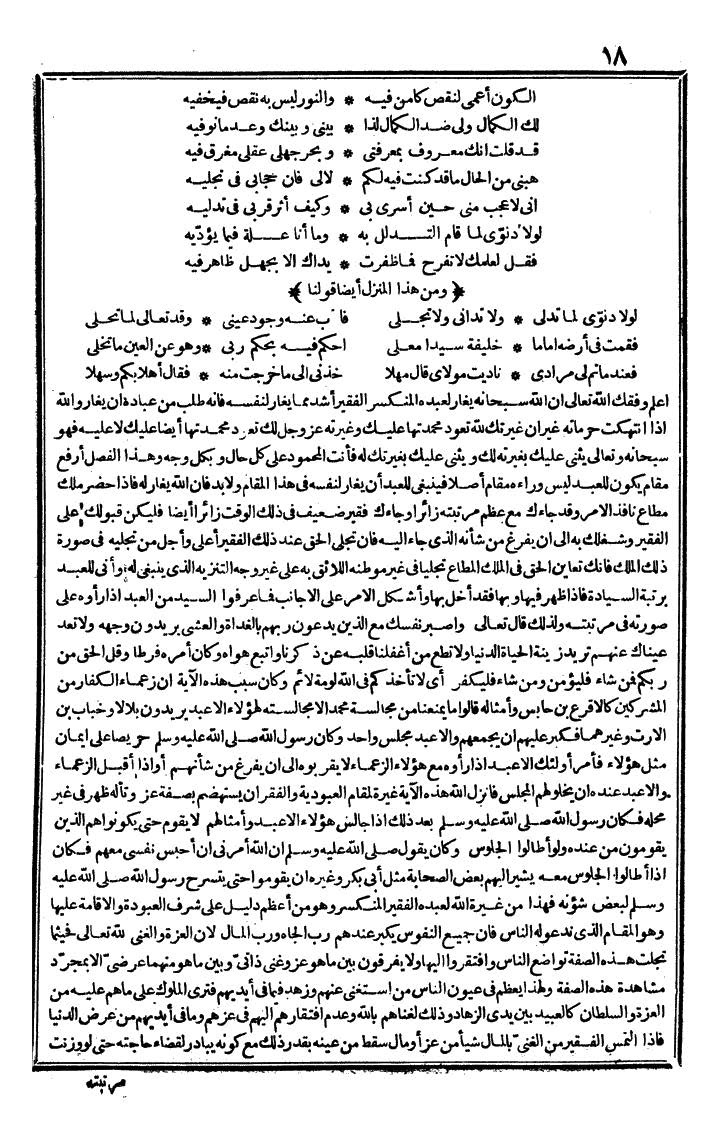 ١٨
الكون أعمى لنقص كامن فيه * والنور ليس به نقص فيخفيه
لك الكمال ولى ضد الكمال لذا * بينى وبينك وعد مانوفيه
قد قلت انك معروف بمعرفتى * وبحر جهلى عقلى مغرق فيه
هبنى من الحال ما قد كنت فيه لكم * لالى فان حجابى فى تجليه
انى لاعجب منى حين أسرى بى * وكيف أثر قربى فى تدليه
لولا دنوّى لما قام التدلل به * وما أنا علة فيما يؤدّيه
فقل لعلمك لا تفرح فما ظفرت * يداك الا بجهل ظاهر فيه
﴿ ومن هذا المنزل أيضا قولنا ﴾
لولا دنوّى لما تدلى * ولا تدانى ولا تجلى فاب عنه وجود عينى * وقد تعالى لما تحلى
فقمت فى أرضه اماما * خليفة سيدا معلى احكم فيه بحكم ربى * وهو عن العين ما تخلى
فعند ما تم لى مرادى * ناديت مولاى قال مهلا خذنى الى ما خرجت منه * فقال أهلا بكم وسهلا
اعلم وفقك الله تعالى ان الله سبحانه يغار لعبده المنكسر الفقير أشد مما يغار لنفسه فانه طلب من عباده ان يغاروا لله
اذا انتهكت حرماته غير ان غيرتك لله تعود محمدتها عليك وغيرته عز وجل لك تعود محمدتها أيضا عليك لا عليه فهو
سبحانه وتعالى يثنى عليك بغيرته لك ويثنى عليك بغيرتك له فأنت المحمود على كل حال وبكل وجه وهذا الفصل أرفع
مقام يكون للعبد ليس وراءه مقام أصلا فينبغى للعبد أن يغار لنفسه فى هذا المقام ولابد فان الله يغار له فاذا حضر ملك
مطاع نافذ الامر وقد جاءك مع عظم مرتبته زائرا وجاءك فقير ضعيف فى ذلك الوقت زائرا أيضا فليكن قبولك على
الفقير وشغلك به الى ان يفرغ من شأنه الذى جاء اليه فان تجلى الحق عند ذلك الفقير أعلى وأجل من تجليه فى صورة
ذلك الملك فانك تعاين الحق فى الملك المطاع تجليا فى غير موطنه اللائق به على غير وجه التنزيه الذى ينبغى له وأنى للعبد
برتبة السيادة فاذا ظهر فيها وبها فقد أخل بها وأشكل الامر على الاجانب فما عرفوا السيد من العبد اذا رأوه على
صورته فى مرتبته ولذلك قال تعالى واصبر نفسك مع الذين يدعون ربهم بالغداة والعشى يريدون وجهه ولا تعد
عيناك عنهم تريد زينة الحياة الدنيا ولا تطع من أغفلنا قلبه عن ذكرنا واتبع هواه وكان أمره فرطا وقل الحق من
ربكم فمن شاء فليؤمن ومن شاء فليكفر أى لا تأخذكم فى الله لومة لائم وكان سبب هذه الآية ان زعماء الكفار من
المشركين كالاقرع بن حابس وأمثاله قالوا ما يمنعنا من مجالسة محمد الا مجالسته لهؤلاء الاعبد يريدون بلالا وخباب بن
الارت وغيرهما فكبر عليهم ان يجمعهم والاعبد مجلس واحد وكان رسول الله صلى الله عليه وسلم حريصا على ايمان
مثل هؤلاء فأمر أولئك الاعبد اذا رأوه مع هؤلاء الزعماء لا يقربوه الى ان يفرغ من شأنهم أو اذا أقبل الزعماء
والاعبد عنده ان يخلوا لهم المجلس فانزل الله هذه الآية غيرة لمقام العبودية والفقر ان يستهضم بصفة عز وتأله ظهر فى غير
محله فكان رسول الله صلى الله عليه وسلم بعد ذلك اذا جالس هؤلاء الاعبد وأمثالهم لا يقوم حتى يكونوا هم الذين
يقومون من عنده ولو أطالوا الجلوس وكان يقول صلى الله عليه وسلم ان الله أمرنى ان أحبس نفسى معهم فكان
اذا أطالوا الجلوس معه يشير اليهم بعض الصحابة مثل أبى بكر وغيره ان يقوموا حتى يتسرح رسول الله صلى الله عليه
وسلم لبعض شؤنه فهذا من غيرة الله لعبده الفقير المنكسر وهو من أعظم دليل على شرف العبودة والاقامة عليها
وهو المقام الذى ندعو له الناس فان جميع النفوس يكبر عندهم رب الجاه ورب المال لان العزة والغنى لله تعالى فحيثما
تجلت هذه الصفة تواضع الناس وافتقروا اليها ولا يفرقون بين ما هو عز وغنى ذاتىّ وبين ما هو منهما عرضىّ الا بمجرّد
مشاهدة هذه الصفة ولهذا يعظم فى عيون الناس من استغنى عنهم وزهد فيما فى أيديهم فترى الملوك على ما هم عليه من
العزة والسلطان كالعبيد بين يدى الزهاد وذلك لغناهم بالله وعدم افتقارهم اليهم فى عزهم وما فى أيديهم من عرض الدنيا
فاذا التمس الفقير من الغنىّ بالمال شيأ من عز أو مال سقط من عينه بقدر ذلك مع كونه يبادر لقضاء حاجته حتى لو وزنت
مرتبته